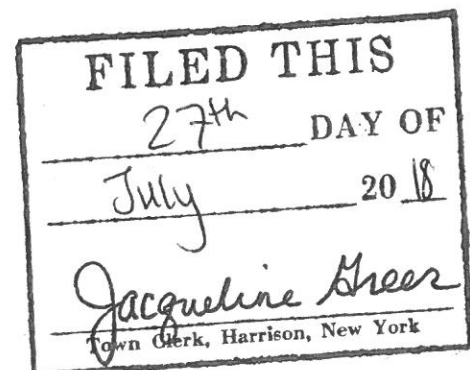 FILED THIS
27th DAY OF
July 20 18
Jacqueline Greer
Town Clerk, Harrison, New York